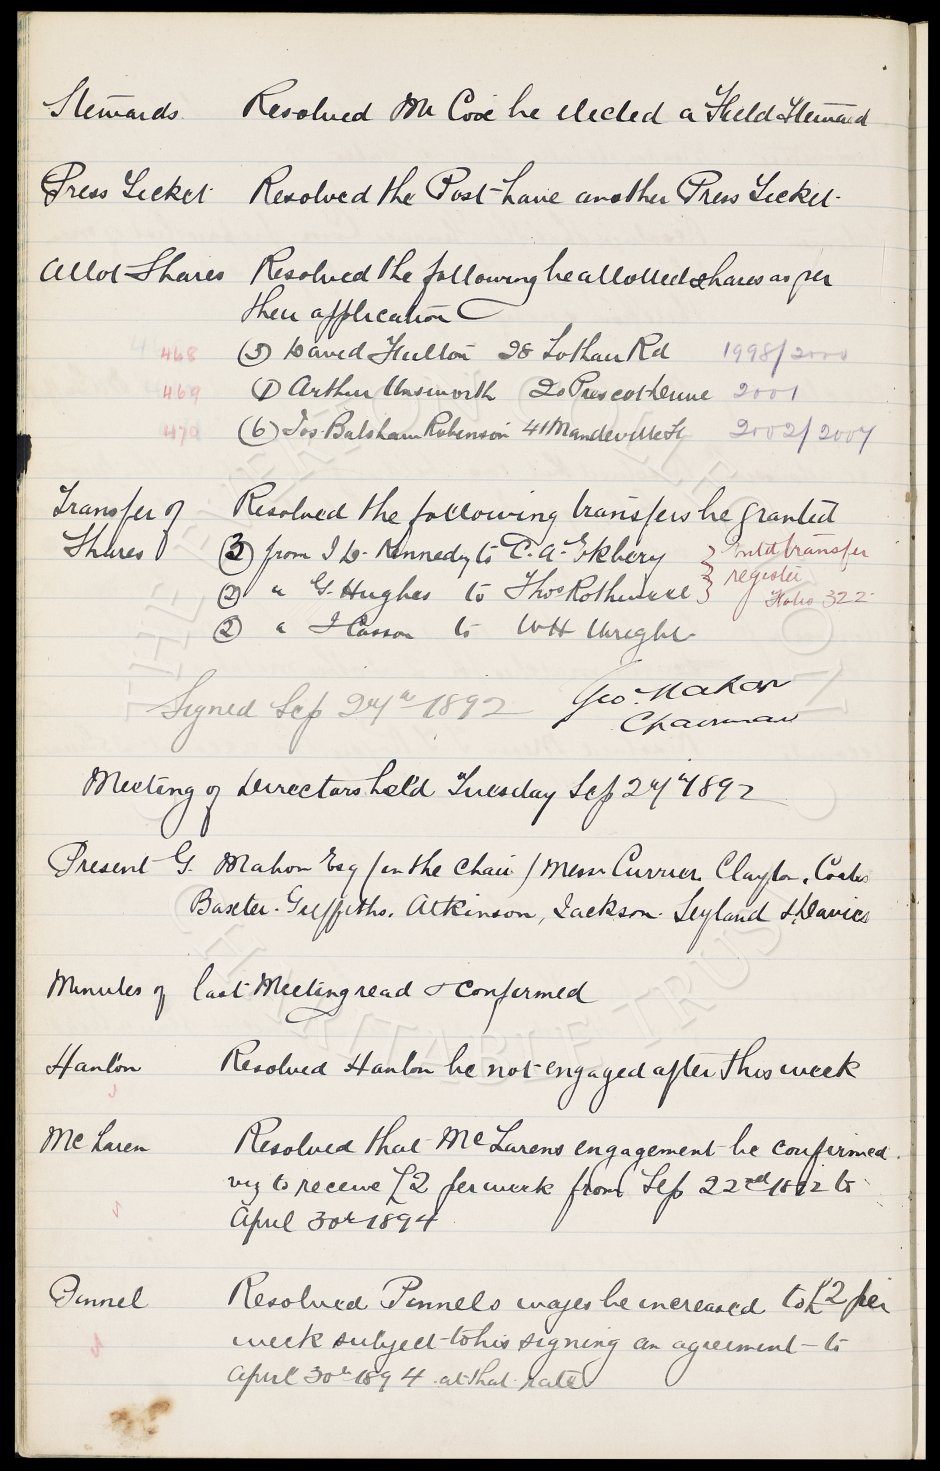 Stewards. Resolved Mr Coxe be elected a Field Steward
Press Ticket Resolved the Post have another Press Ticket.
Allot Shares Resolved the following be allotted shares as per
their application
468 (3) David Fulton 28 Lothair Rd 1998/2000
469 (1) Arthur Unsworth 20 Prescot Drive 2001
470 (6) Jos. Balsham Robinson 41 Mandeville St 2002/2007
Transfer of Resolved the following transfers be granted
Shares (3) from J D. Kennedy to C. A. Ekbery } Entd transfer
(2) " G. Hughes to Thos Rothwell } register Folio 322
(2) " J Casson to W H Wright
Signed Sep 27th 1892 Geo. Mahon
Chairman
Meeting of Directors held Tuesday Sep 27th 1892
Present G. Mahon Esq (in the chair) Messrs Currier, Clayton, Coates
Baxter. Griffiths. Atkinson, Jackson. Leyland & Davies
Minutes of last Meeting read & confirmed
Hanlon Resolved Hanlon be not engaged after this week
McLaren Resolved that McLarens engagement be confirmed.
viz to receive £2 per week from Sep 22nd 1892 to
April 30th 1894
Pinnel Resolved Pinnels wages be increased to £2 per
week subject to his signing an agreement to
April 30th 1894 at that rate
THE EVERTON COLLECTION
CHARITABLE TRUST